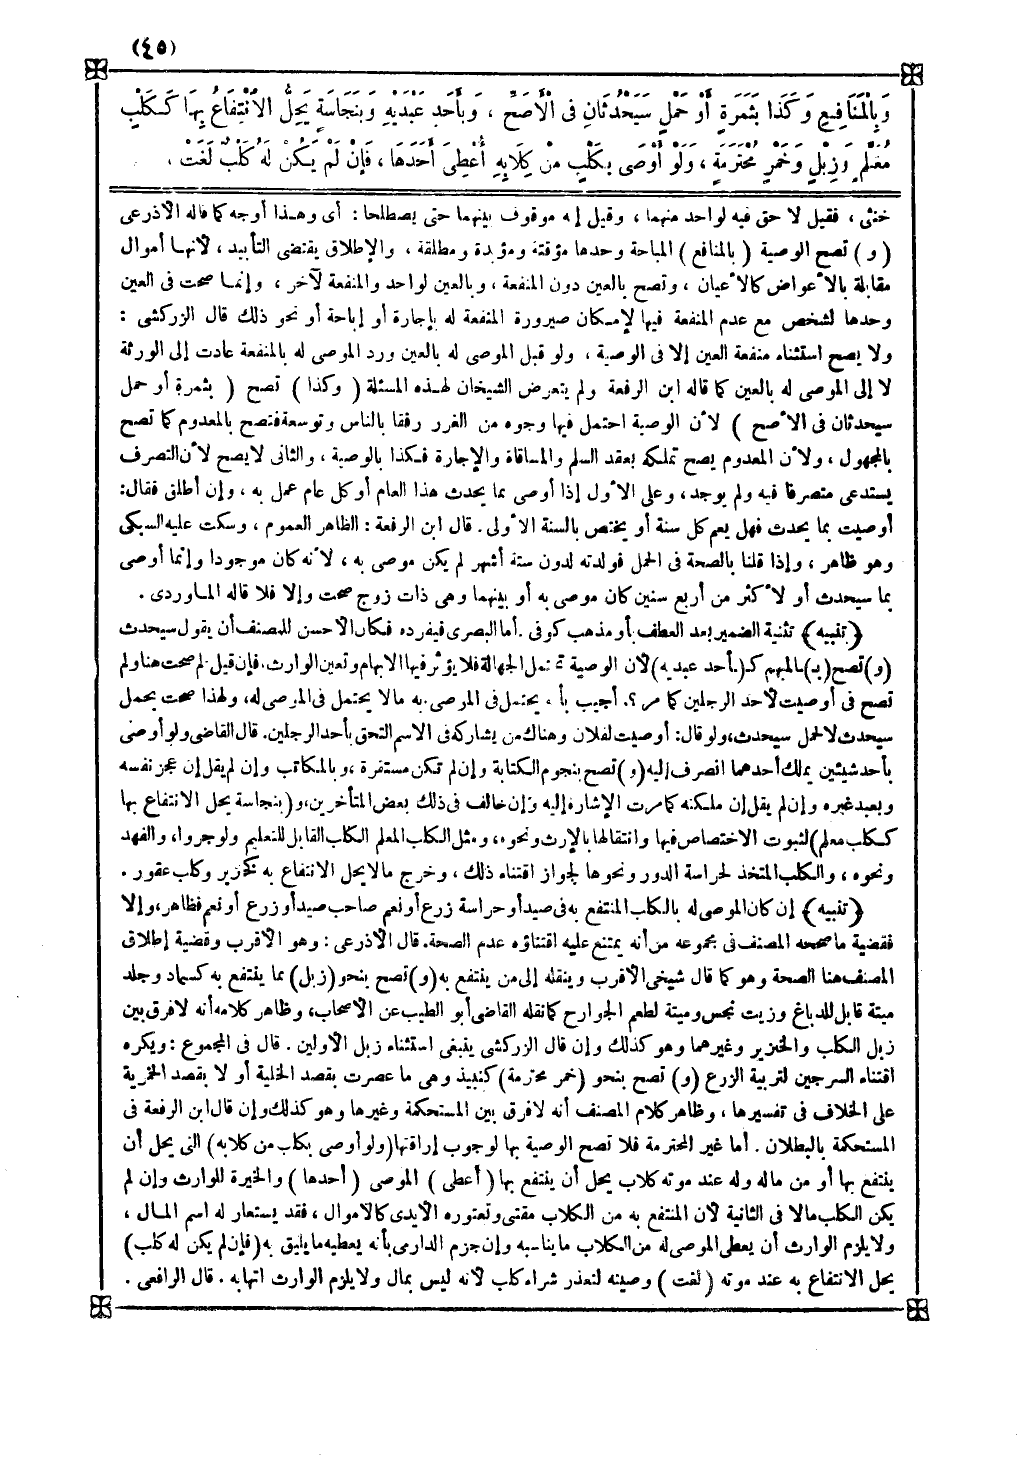 (٤٥)
وَبِالْمَنَافِعِ وَكَذَا بِثَمَرَةٍ أَوْ حَمْلٍ سَيَحْدُثَانِ فِى الْأَصَحِّ ، وَبِأَحَدِ عَبْدَيْهِ وَبِنَجَاسَةٍ يَحِلُّ الِانْتِفَاعُ بِهَا كَكَلْبٍ
مُعَلَّمٍ وَزِبْلٍ وَخَمْرٍ مُحْتَرَمَةٍ ، وَلَوْ أَوْصَى بِكَلْبٍ مِنْ كِلَابِهِ أُعْطِىَ أَحَدَهَا ، فَإِنْ لَمْ يَكُنْ لَهُ كَلْبٌ لَغَتْ ،
خنثى ، فقيل لا حق فيه لواحد منهما ، وقيل إنه موقوف بينهما حتى يصطلحا : أى وهذا أوجه كما قاله الأذرعى
( و ) تصح الوصية ( بالمنافع ) المباحة وحدها مؤقتة ومؤبدة ومطلقة ، والإطلاق يقتضى التأبيد ، لأنها أموال
مقابلة بالأعواض كالأعيان ، وتصح بالعين دون المنفعة ، وبالعين لواحد والمنفعة لآخر ، وإنما صحت فى العين
وحدها لشخص مع عدم المنفعة فيها لإمكان صيرورة المنفعة له بإجارة أو إباحة أو نحو ذلك قال الزركشى :
ولا يصح استثناء منفعة العين إلا فى الوصية ، ولو قبل الموصى له بالعين ورد الموصى له بالمنفعة عادت إلى الورثة
لا إلى الموصى له بالعين كما قاله ابن الرفعة ولم يتعرض الشيخان لهذه المسئلة ( وكذا ) تصح ( بثمرة أو حمل
سيحدثان فى الأصح ) لأن الوصية احتمل فيها وجوه من الغرر رفقا بالناس وتوسعة فتصح بالمعدوم كما تصح
بالمجهول ، ولأن المعدوم يصح تملكه بعقد السلم والمساقاة والإجارة فكذا بالوصية ، والثانى لا يصح لأن التصرف
يستدعى متصرفا فيه ولم يوجد ، وعلى الأول إذا أوصى بما يحدث هذا العام أو كل عام عمل به ، وإن أطلق فقال:
أوصيت بما يحدث فهل يعم كل سنة أو يختص بالسنة الأولى . قال ابن الرفعة : الظاهر العموم ، وسكت عليه السبكى
وهو ظاهر ، وإذا قلنا بالصحة فى الحمل فولدته لدون ستة أشهر لم يكن موصى به ، لأنه كان موجودا وإنما أوصى
بما سيحدث أو لأكثر من أربع سنين كان موصى به أو بينهما وهى ذات زوج صحت وإلا فلا قاله الماوردى .
﴿ تنبيه ﴾ تثنية الضمير بعد العطف بأو مذهب كوفى . أما البصرى فيفرده فكان الأحسن للمصنف أن يقول سيحدث
(و) تصح (بـ)ـالمبهم كـ(ـأحد عبديه) لأن الوصية تحتمل الجهالة فلا يؤثر فيها الإبهام وتعين الوارث. فإن قيل لم صحت هنا ولم
تصح فى أوصيت لأحد الرجلين كما مر ؟. أجيب بأنه يحتمل فى الموصى به مالا يحتمل فى الموصى له، ولهذا صحت بحمل
سيحدث لا لحمل سيحدث، ولو قال: أوصيت لفلان وهناك من يشاركه فى الاسم التحق بأحد الرجلين. قال القاضى ولو أوصى
بأحد شيئين يملك أحدهما انصرف إليه (و) تصح بنجوم الكتابة وإن لم تكن مستقرة ، وبالمكاتب وإن لم يقل إن عجز نفسه
وبعبد غيره وإن لم يقل إن ملكته كما مرت الإشارة إليه وإن خالف فى ذلك بعض المتأخرين، و(بنجاسة يحل الانتفاع بها
ككلب معلم) لثبوت الاختصاص فيها وانتقالها بالإرث ونحوه ، ومثل الكلب المعلم الكلب القابل للتعليم ولو جروا ، والفهد
ونحوه ، والكلب المتخذ لحراسة الدور ونحوها لجواز اقتناء ذلك ، وخرج مالا يحل الانتفاع به كخنزير وكلب عقور .
﴿ تنبيه ﴾ إن كان الموصى له بالكلب المنتفع به فى صيد أو حراسة زرع أو نعم صاحب صيد أو زرع أو نعم فظاهر، وإلا
فقضية ما صححه المصنف فى مجموعه من أنه يمتنع عليه اقتناؤه عدم الصحة. قال الأذرعى : وهو الأقرب وقضية إطلاق
المصنف هنا الصحة وهو كما قال شيخى الأقرب وينقله إلى من ينتفع به (و) تصح بنحو (زبل) بما ينتفع به كسماد وجلد
ميتة قابل للدباغ وزيت نجس وميتة لطعم الجوارح كما نقله القاضى أبو الطيب عن الأصحاب، وظاهر كلامه أنه لا فرق بين
زبل الكلب والخنزير وغيرهما وهو كذلك وإن قال الزركشى ينبغى استثناء زبل الأولين . قال فى المجموع : ويكره
اقتناء السرجين لتربية الزرع (و) تصح بنحو (خمر محترمة) كنبيذ وهى ما عصرت بقصد الخلية أو لا بقصد الخمرية
على الخلاف فى تفسيرها ، وظاهر كلام المصنف أنه لا فرق بين المستحكمة وغيرها وهو كذلك وإن قال ابن الرفعة فى
المستحكمة بالبطلان . أما غير المحترمة فلا تصح الوصية بها لوجوب إراقتها (ولو أوصى بكلب من كلابه) التى يحل أن
ينتفع بها أو من ماله وله عند موته كلاب يحل أن ينتفع بها ( أعطى ) الموصى ( أحدها ) والخيرة للوارث وإن لم
يكن الكلب مالا فى الثانية لأن المنتفع به من الكلاب مقتنى وتعتوره الأيدى كالأموال ، فقد يستعار له اسم المال ،
ولا يلزم الوارث أن يعطى الموصى له من الكلاب ما يناسبه وإن جزم الدارمى بأنه يعطيه ما يليق به (فإن لم يكن له كلب)
يحل الانتفاع به عند موته ( لغت ) وصيته لتعذر شراء كلب لأنه ليس بمال ولا يلزم الوارث اتهابه . قال الرافعى .